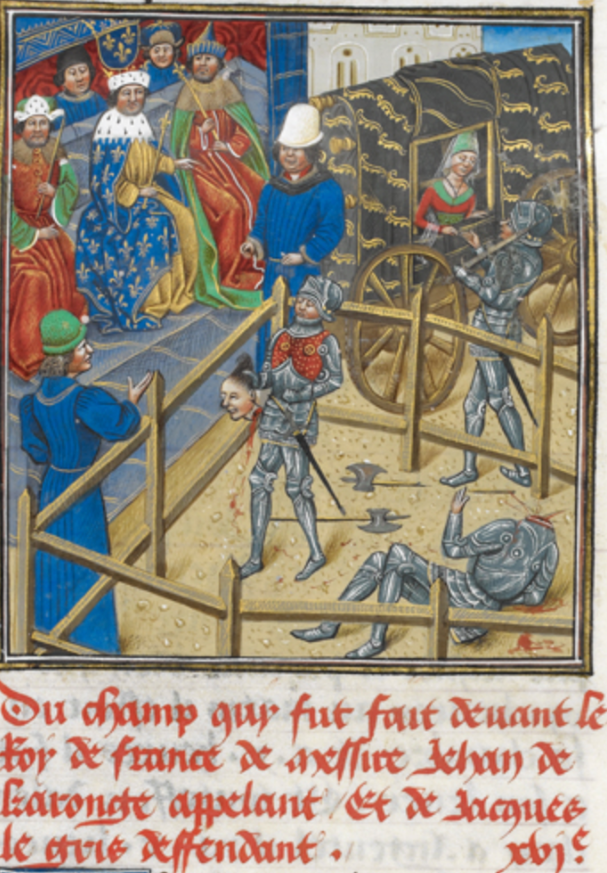 Du champ quy fut fait deuant le
Roy de france de messire Jehan de
karonge appelant / Et de Jacques
le gris deffendant . xvj.e